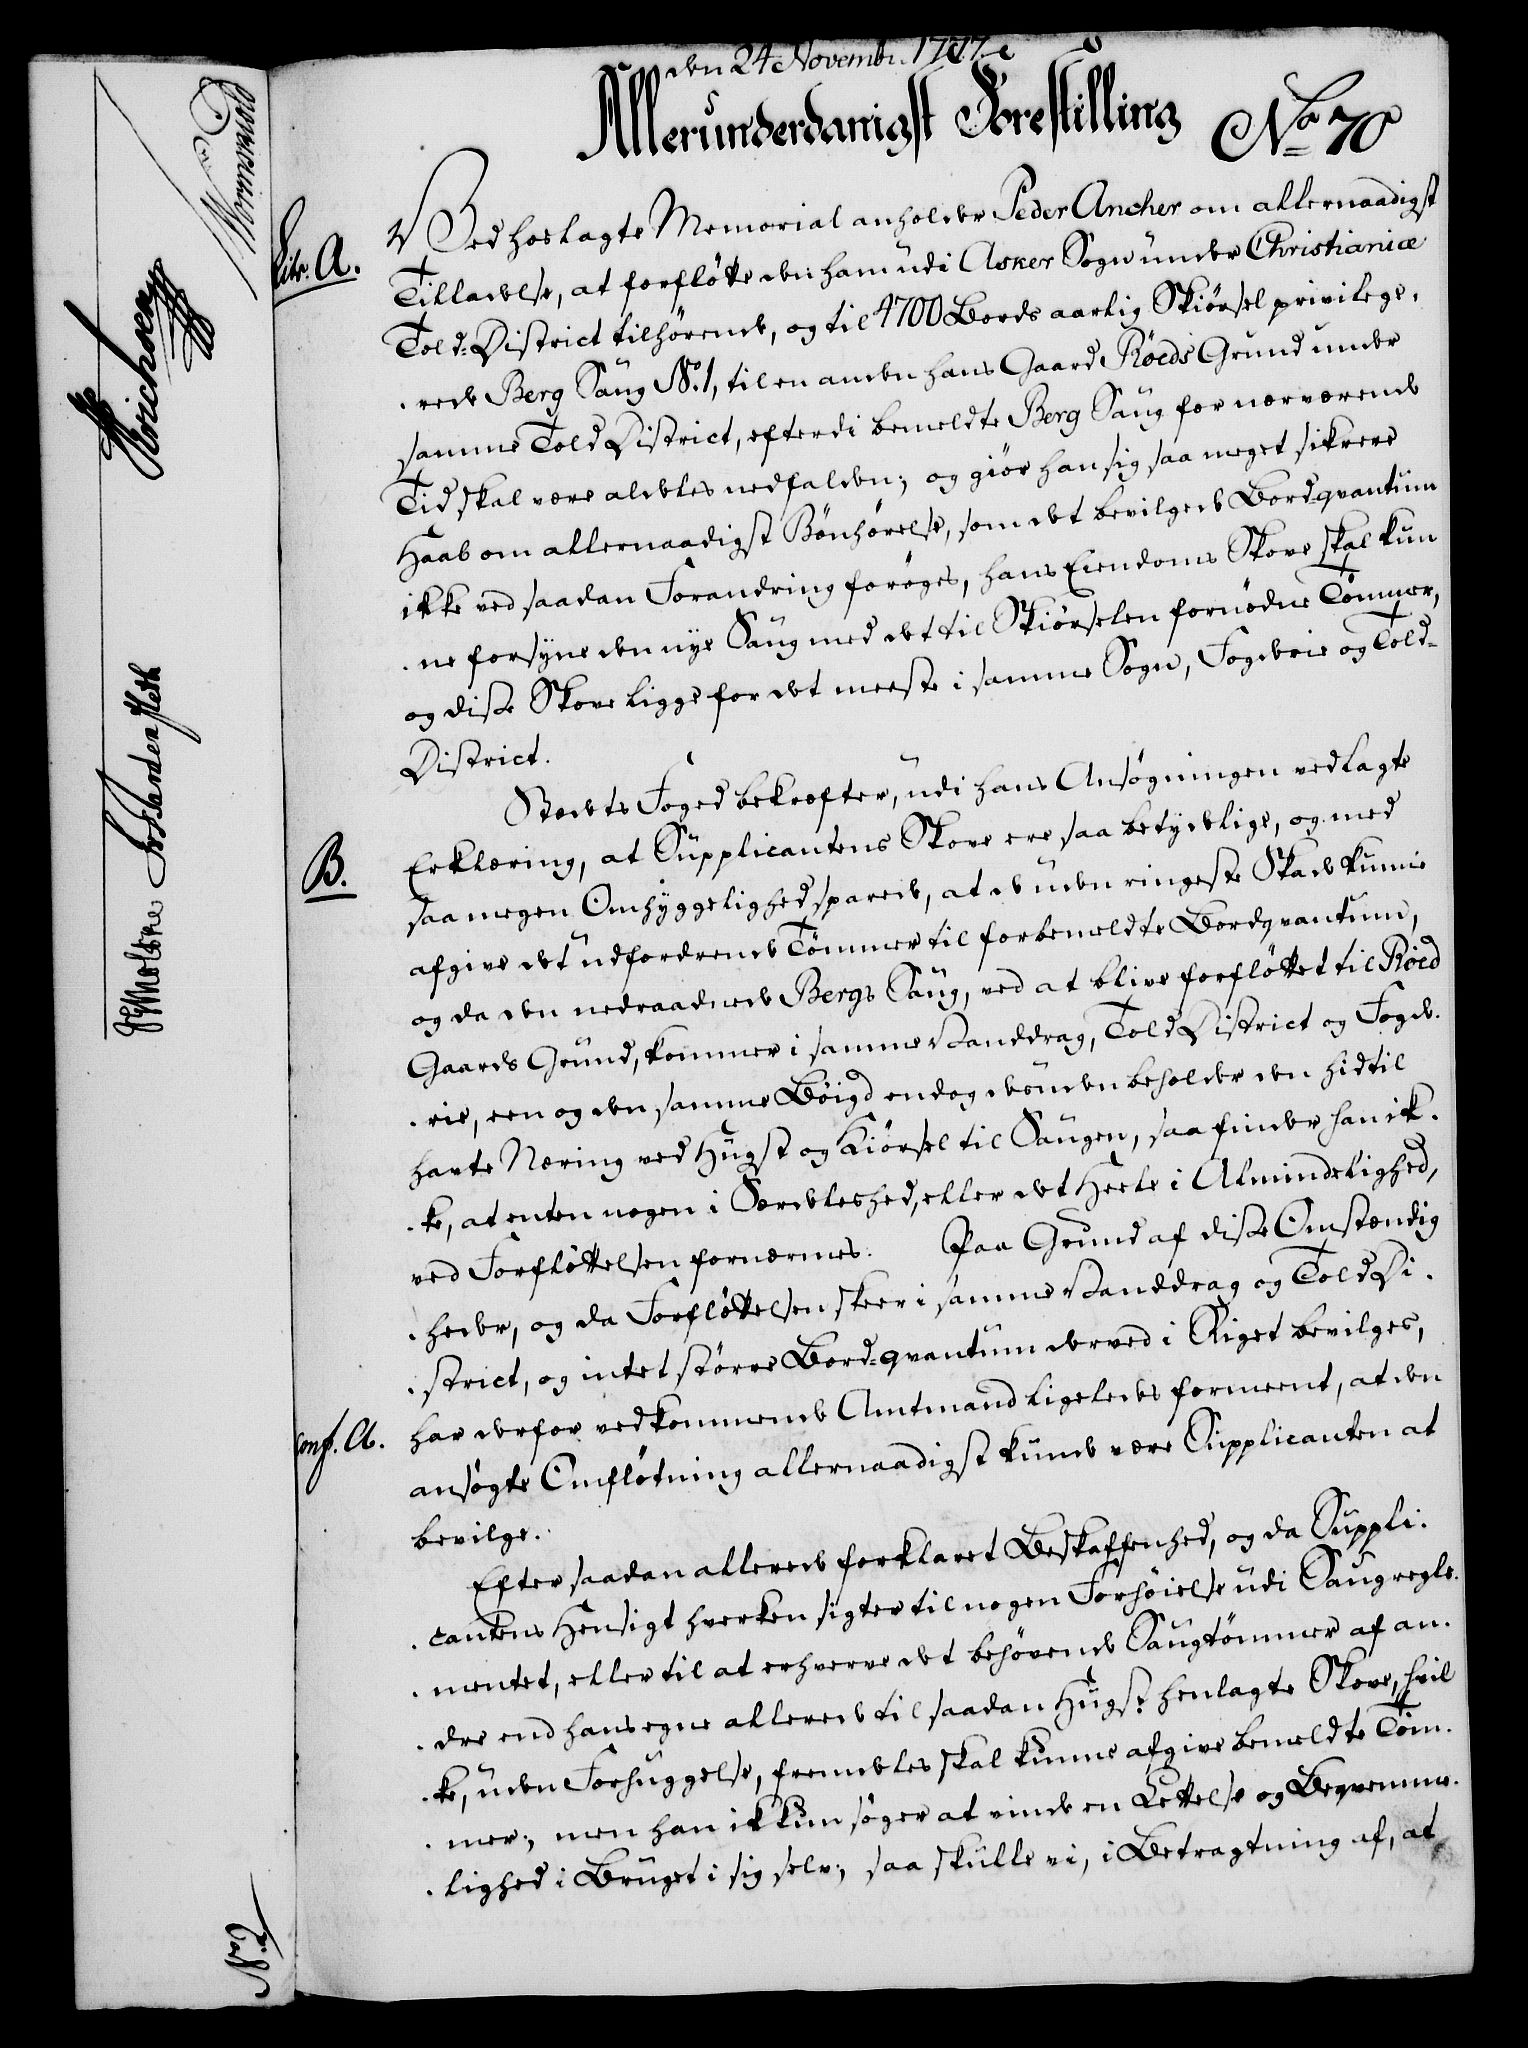 den 24 Novembr. 1777.
Allerunderdanigst Forestilling No 70
Litr. A.
Ved hoslagte Memorial anholder Peder Ancher om allernaadigst
Tilladelse, at forflötte den ham udi Asker Sogn under Christianiæ
Told-District tilhörende, og til 4700 Bords aarlig Skiörsel privilege-
rede Berg Saug No. 1, til en anden hans Gaard Röeds Grund under
samme Told District, efterdi bemeldte Berg Saug for nærværende
Tid skal være aldeles nedfalden; og giör han sig saa meget sikrere
Haab om allernaadigst Bönhörelse, som det bevilgede Bord-qvantum
ikke ved saadan Forandring foröges, hans Eiendoms Skove skal kun-
ne forsyne den nye Saug med det til Skiörselen fornödne Tömmer,
og disse Skove ligge for det meeste i samme Sogn, Fogderie og Told-
District.
B.
Stedets Foged bekræfter, udi hans Ansögningen vedlagte
Erklæring, at Supplicantens Skove ere saa betydelige, og med
saa megen Omhyggelighed sparede, at de uden ringeste Skade kunne
afgive det udfordrende Tömmer til forbemeldte Bordqvantum,
og da den nedraadnede Bergs Saug, ved at blive forflöttet til Röed
Gaards Grund, kommer i samme Vanddrag, Told District og Fogde-
rie, een og den samme Böigd endog desuden beholder den hidtil
havte Næring ved Hugst og Kiörsel til Saugen, saa finder han ik-
ke, at enten nogen i Særdeleshed, eller det Heele i Almindelighed,
ved Forflöttelsen fornærmes. Paa Grund af disse Omstændig
heder, og da Forflöttelsen skeer i samme Vanddrag og Told Di-
strict, og intet större Bord-qvantum derved i Riget bevilges,
conf. A.
har derfor vedkommende Amtmand ligeledes formeent, at den
ansögte Omflötning allernaadigst kunde være Supplicanten at
bevilge.
Efter saadan allerede forklaret Beskaffenhed, og da Suppli-
cantens Hensigt hverken sigter til nogen Forhöielse udi Saugregle-
mentet, eller til at erhverve det behövende Saugtömmer af an-
dre end hans egne allerede til saadan Hugst henlagte Skove, hvil
ke, uden Forhuggelse, fremdeles skal kunne afgive bemeldte Töm-
mer; men han ikkun söger at vinde en Lettelse og Beqvemme-
lighed i Bruget i sig selv; saa skulle vi, i Betragtning af, at